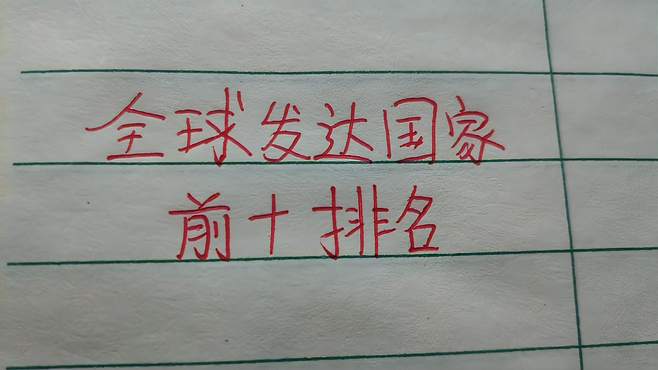 全球发达国家
前十排名